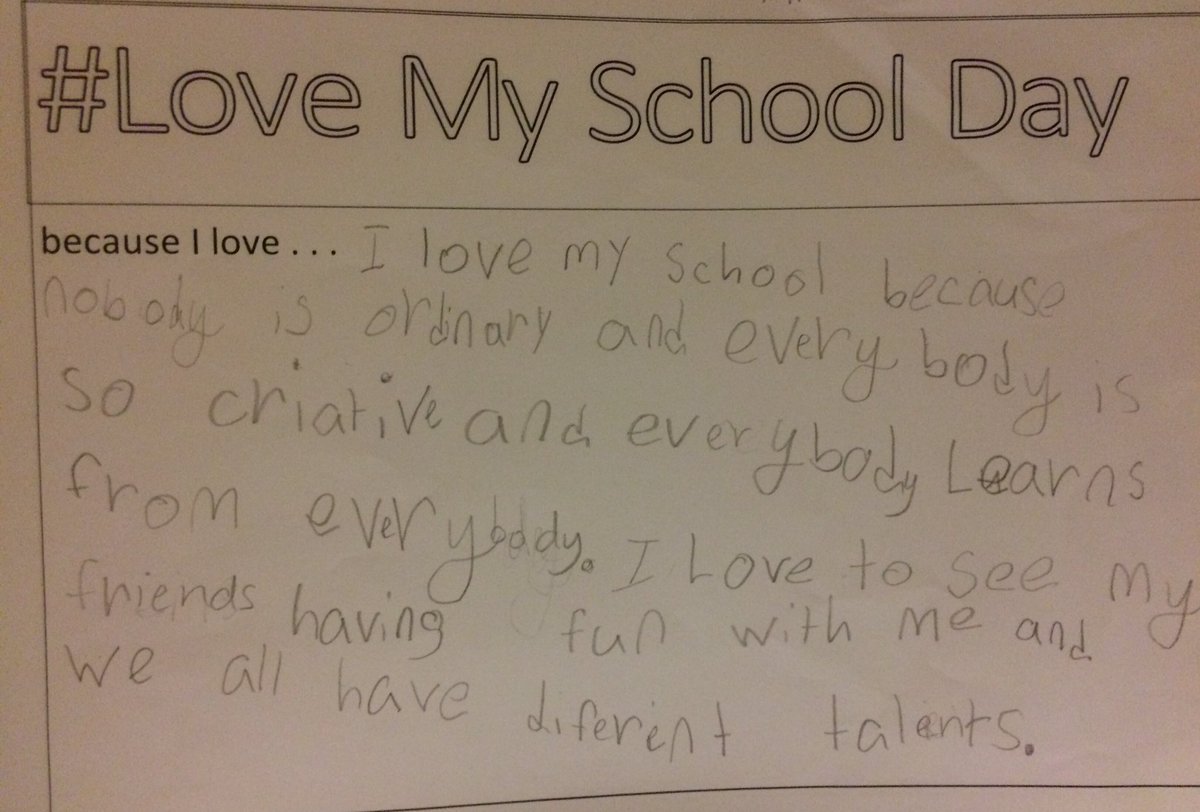 #Love My School Day
because I love . . . I love my school because
nobody is ordinary and every body is
so criative and everybody Learns
from everybody. I Love to see my
friends having fun with me and
we all have diferent talents.